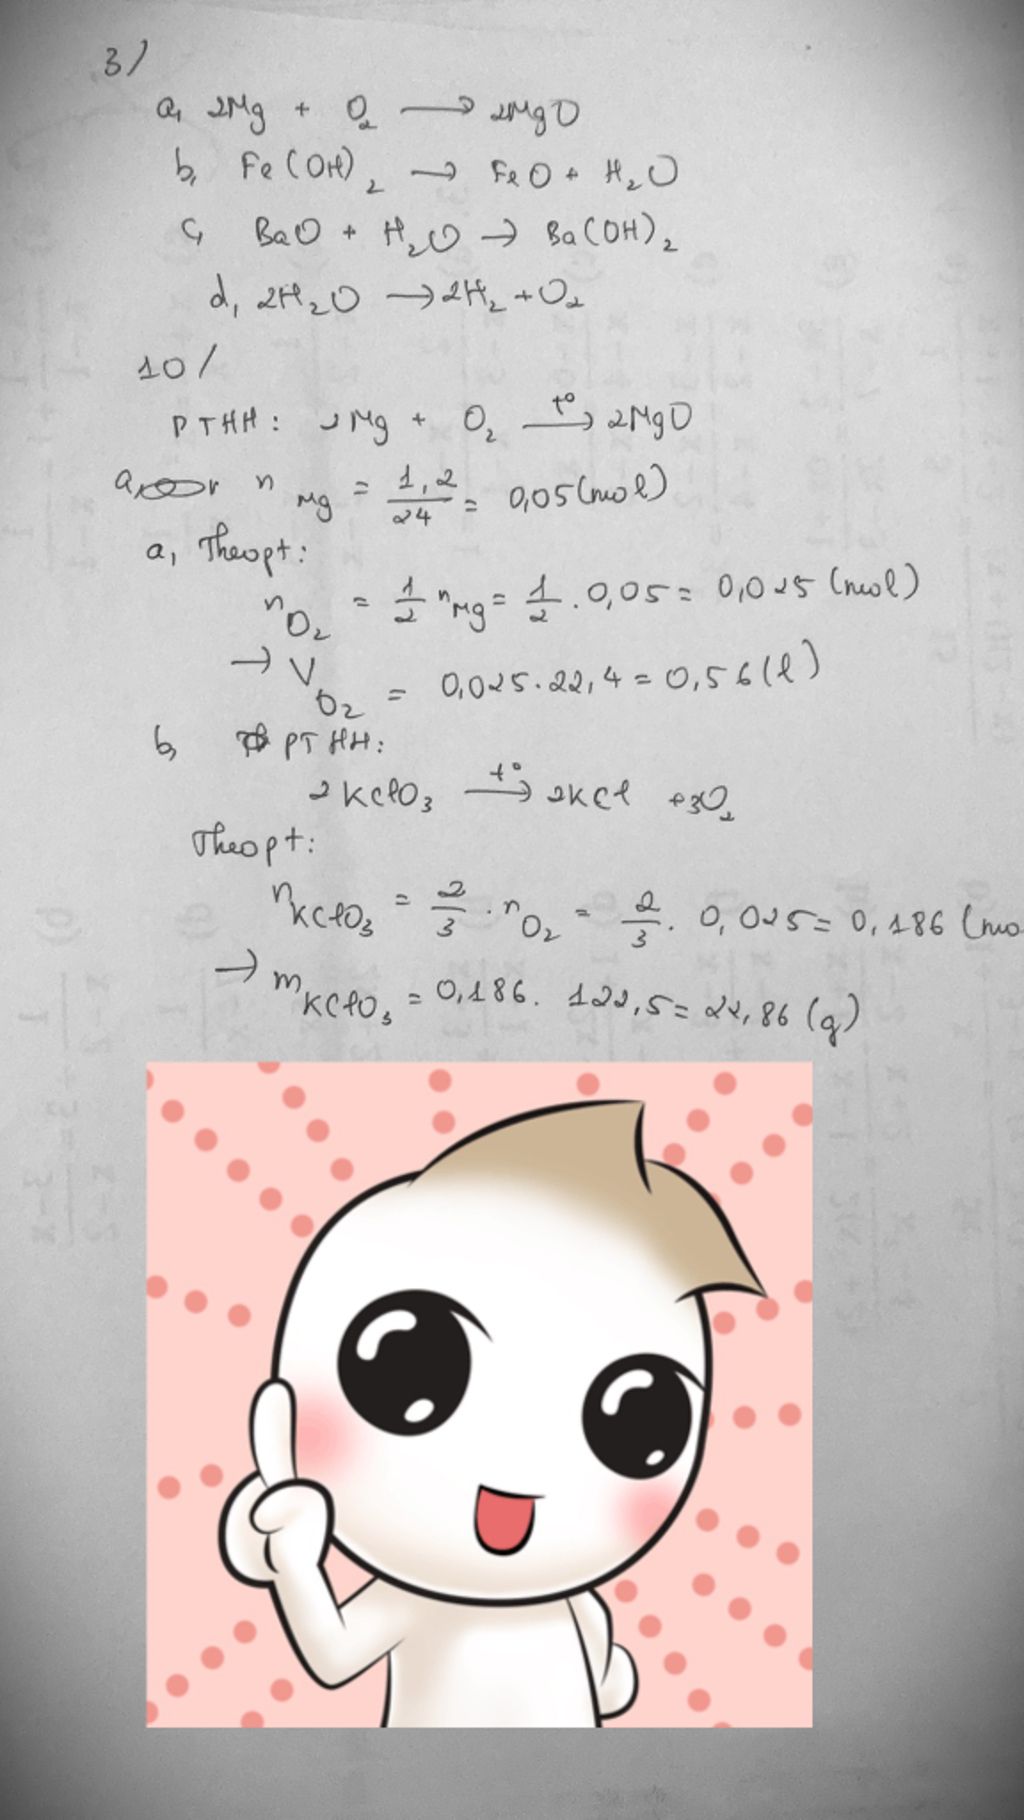 3/
a, 2Mg + O₂ → 2MgO
b, Fe(OH)₂ → FeO + H₂O
c, BaO + H₂O → Ba(OH)₂
d, 2H₂O → 2H₂ + O₂
10/
PTHH: 2Mg + O₂ →(t°) 2MgO
a, n Mg = 1,2/24 = 0,05 (mol)
a, Theo pt:
nO₂ = 1/2 nMg = 1/2 . 0,05 = 0,025 (mol)
→ VO₂ = 0,025.22,4 = 0,56 (l)
b, PTHH:
2KClO₃ →(t°) 2KCl + 3O₂
Theo pt:
nKClO₃ = 2/3 . nO₂ = 2/3 . 0,025 = 0,186 (mo
→ mKClO₃ = 0,186. 122,5 = 22,86 (g)